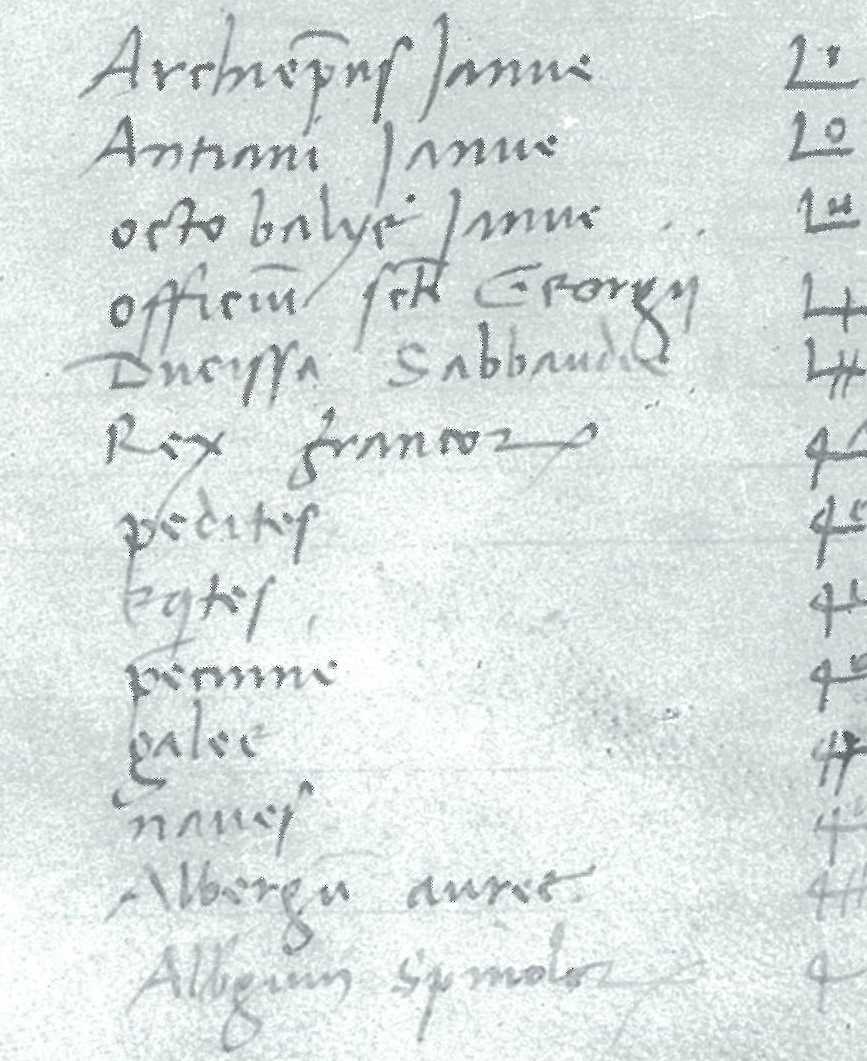 Archiep̄us Janue
Antiani Janue
octo balye Janue
officiū sct̄i Georgij
Ducissa Sabbaudie
Rex francoꝝ
pedites
eqtes
pecunie
galee
naues
Albergū auree
Albgum Spinoloꝝ